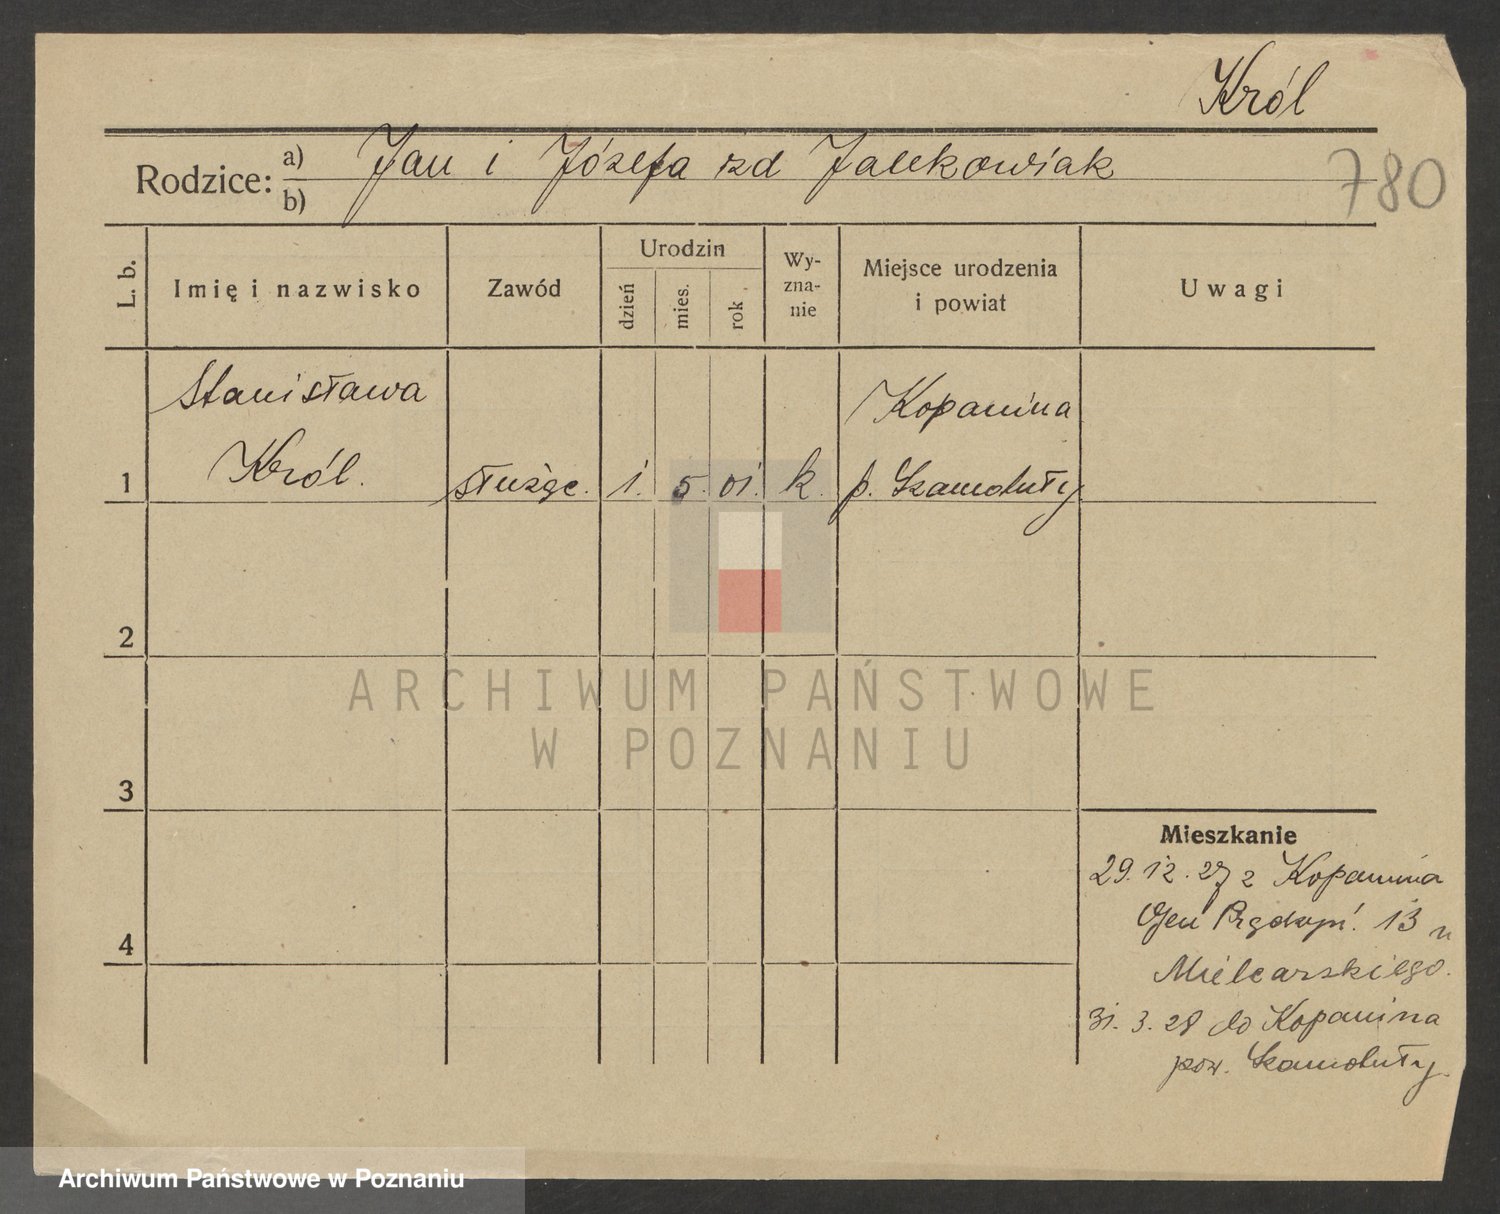 Król
780
Rodzice: a) Jan i Józefa zd
b)
L. b.
Imię i nazwisko
Zawód
Urodzin
dzień
mies.
rok
Wy-
zna-
nie
Miejsce urodzenia
i powiat
Uwagi
Stanisława
Kopanina
1 Król. służąc. 1. 5. 01. k. p. Szamotuły
2
ARCHIWUM PAŃSTWOWE
W POZNANIU
3
4
Mieszkanie
29. 12. 27 z Kopanina
13 u
Mielcarskiego.
31. 3. 28 do Kopanina
pow. Szamotuły
Archiwum Państwowe w Poznaniu